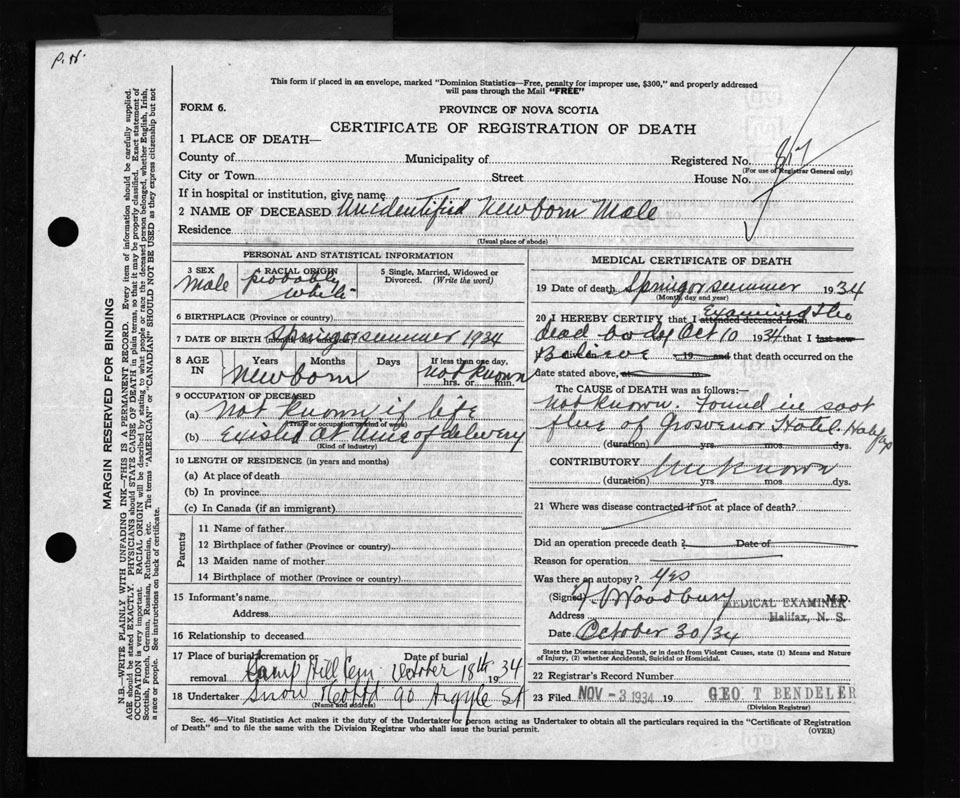 P.N.
This form if placed in an envelope, marked "Dominion Statistics—Free, penalty for improper use, $300," and properly addressed
will pass through the Mail "FREE"
FORM 6.
PROVINCE OF NOVA SCOTIA
CERTIFICATE OF REGISTRATION OF DEATH
1 PLACE OF DEATH—
County of Municipality of Registered No. 817
(For use of Registrar General only)
City or Town Street House No.
If in hospital or institution, give name
2 NAME OF DECEASED Unidentified Newborn Male
Residence
(Usual place of abode)
PERSONAL AND STATISTICAL INFORMATION
3 SEX Male
4 RACIAL ORIGIN probably white
5 Single, Married, Widowed or Divorced. (Write the word)
6 BIRTHPLACE (Province or country)
7 DATE OF BIRTH Spring or summer 1934
8 AGE IN Years Months Days If less than one day,
Newborn not known
hrs. or min.
9 OCCUPATION OF DECEASED
(a) Not known if life
(Trade or occupation or kind of work)
(b) Existed at time of delivery
(Kind of industry)
10 LENGTH OF RESIDENCE (in years and months)
(a) At place of death
(b) In province
(c) In Canada (if an immigrant)
Parents
11 Name of father
12 Birthplace of father (Province or country)
13 Maiden name of mother
14 Birthplace of mother (Province or country)
15 Informant's name
Address
16 Relationship to deceased
17 Place of burial cremation or removal Date of burial
Camp Hill Cem October 18th 1934
18 Undertaker Snow & Co Ltd 90 Argyle St
(Name and address)
MEDICAL CERTIFICATE OF DEATH
19 Date of death Spring or summer 1934
(Month, day and year)
20 I HEREBY CERTIFY that I attended deceased from Examined the
dead body Oct 10 1934 that I last saw
Believe 19 and that death occurred on the
date stated above, at m.
The CAUSE OF DEATH was as follows:—
not known. Found in soot
flue of Grosvenor Hotel. Halifax
(duration) yrs. mos. dys.
CONTRIBUTORY Unknown
(duration) yrs. mos. dys.
21 Where was disease contracted if not at place of death?
Did an operation precede death? Date of
Reason for operation
Was there an autopsy? yes
(Signed) Woodbury M.D.
MEDICAL EXAMINER
Address Halifax, N. S.
Date October 30/34
State the Disease causing Death, or in death from Violent Causes, state (1) Means and Nature
of Injury, (2) whether Accidental, Suicidal or Homicidal.
22 Registrar's Record Number
23 Filed NOV -3 1934 19 GEO T BENDELER
(Division Registrar)
Sec. 46—Vital Statistics Act makes it the duty of the Undertaker or person acting as Undertaker to obtain all the particulars required in the "Certificate of Registration
of Death" and to file the same with the Division Registrar who shall issue the burial permit.
(OVER)
MARGIN RESERVED FOR BINDING
N.B.—WRITE PLAINLY WITH UNFADING INK—THIS IS A PERMANENT RECORD. Every item of information should be carefully supplied.
AGE should be stated EXACTLY. PHYSICIANS should STATE CAUSE OF DEATH in plain terms, so that it may be properly classified. Exact statement of
OCCUPATION is very important. RACIAL ORIGIN will be described by stating to what people or race the deceased person belonged, whether English, Irish,
Scottish, French, German, Russian, Ruthenian, etc. The terms "AMERICAN" or "CANADIAN" SHOULD NOT BE USED as they express citizenship but not
a race or people. See instructions on back of certificate.